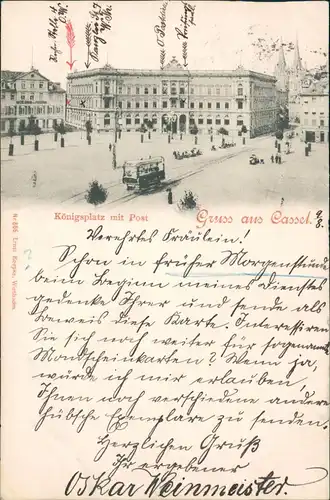 Königsplatz mit Post
Gruss aus Cassel.
9/8.
Verehrtes Fräulein!
Schon in früher Morgenstunde
beim Beginn meines Dienstes
gedenke Ihrer und sende als
Beweis diese Karte. Interessieren
Sie sich noch weiter für sogenannte
Mondscheinkarten? Wenn ja,
würde ich mir erlauben,
Ihnen noch verschiedene andere
hübsche Exemplare zu senden.
Herzlichen Gruß
Ihr ergebener
Oskar Weinmeister